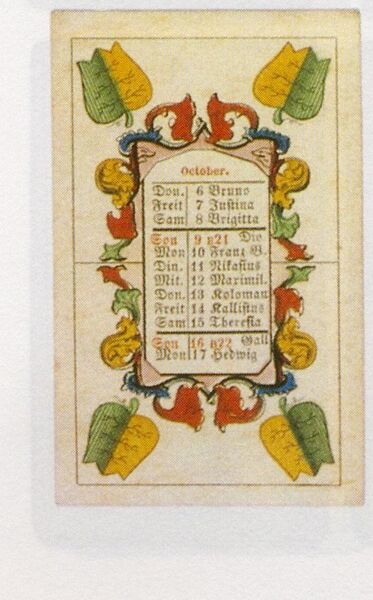 October.
Don. 6 Bruno
Freit 7 Justina
Sam 8 Brigitta
Son 9 n21 Dio
Mon 10 Franz B.
Din. 11 Nikasius
Mit. 12 Maximil.
Don. 13 Koloman
Freit 14 Kallistus
Sam 15 Theresia
Son 16 n22 Gall
Mon 17 Hedwig